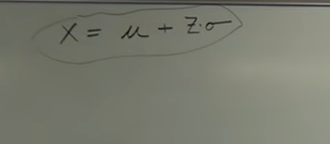 X = μ + Z·σ